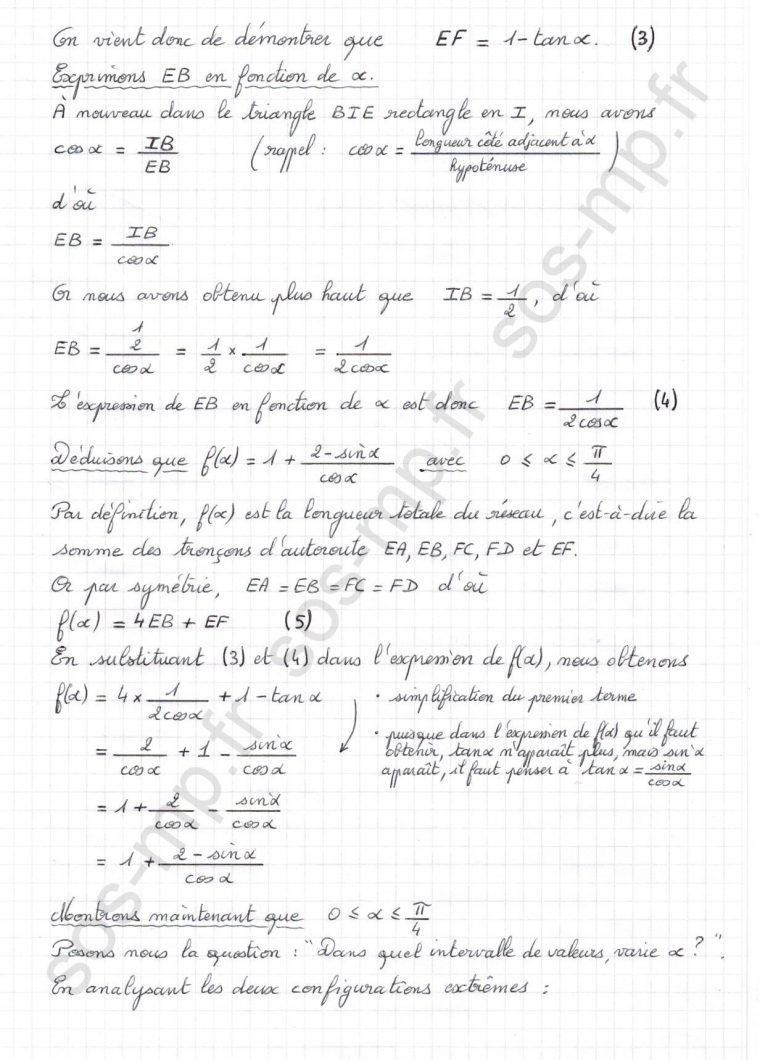 On vient donc de démontrer que EF = 1 - tan α. (3)
Exprimons EB en fonction de α.
À nouveau dans le triangle BIE rectangle en I, nous avons
cos α = IB/EB (rappel : cos α = longueur côté adjacent à α / hypoténuse)
d'où
EB = IB/cos α
Or nous avons obtenu plus haut que IB = 1/2, d'où
EB = (1/2)/cos α = 1/2 × 1/cos α = 1/(2cos α)
L'expression de EB en fonction de α est donc EB = 1/(2cos α) (4)
Déduisons que f(α) = 1 + (2 - sin α)/cos α avec 0 ≤ α ≤ π/4
Par définition, f(α) est la longueur totale du réseau, c'est-à-dire la
somme des tronçons d'autoroute EA, EB, FC, FD et EF.
Or par symétrie, EA = EB = FC = FD d'où
f(α) = 4EB + EF (5)
En substituant (3) et (4) dans l'expression de f(α), nous obtenons
f(α) = 4 × 1/(2cos α) + 1 - tan α
• simplification du premier terme
= 2/cos α + 1 - sin α/cos α
• puisque dans l'expression de f(α) qu'il faut
obtenir, tan α n'apparaît plus, mais sin α
apparaît, il faut penser à tan α = sin α/cos α
= 1 + 2/cos α - sin α/cos α
= 1 + (2 - sin α)/cos α
Montrons maintenant que 0 ≤ α ≤ π/4
Posons nous la question : "Dans quel intervalle de valeurs, varie α ?".
En analysant les deux configurations extrêmes :
sos-mp.fr sos-mp.fr sos-mp.fr